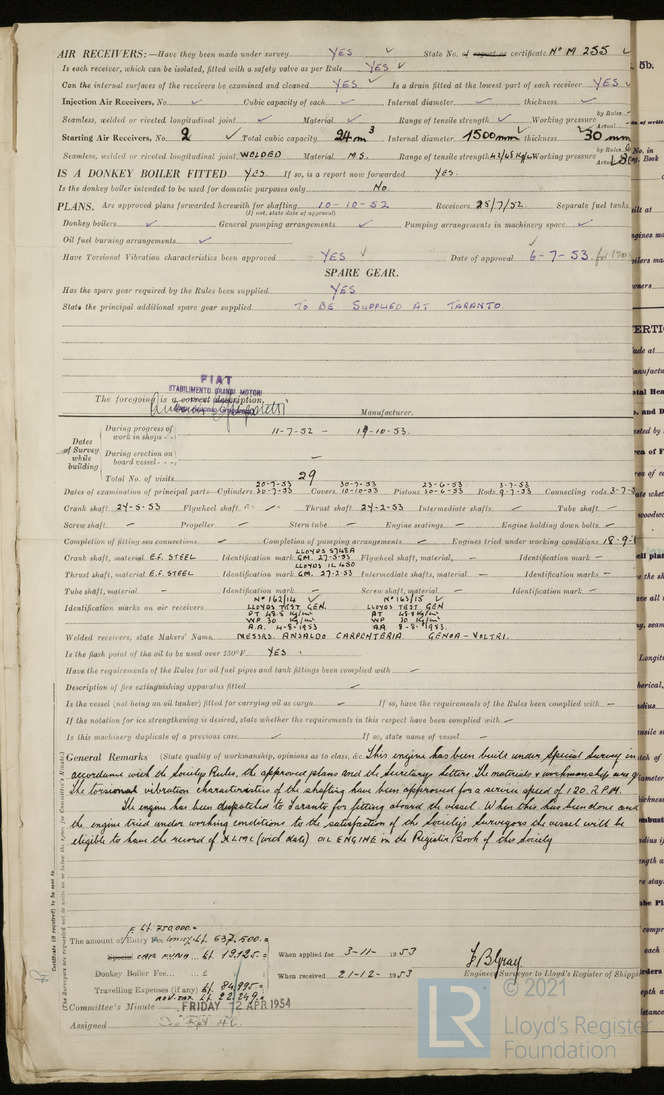 AIR RECEIVERS:—Have they been made under survey YES State No. of report or certificate No M 255
Is each receiver, which can be isolated, fitted with a safety valve as per Rule YES
Can the internal surfaces of the receivers be examined and cleaned YES Is a drain fitted at the lowest part of each receiver YES
Injection Air Receivers, No. Cubic capacity of each Internal diameter thickness
Seamless, welded or riveted longitudinal joint Material Range of tensile strength Working pressure by Rules Actual
Starting Air Receivers, No. 2 Total cubic capacity 24 m3 Internal diameter 1500 mm thickness 30 mm
Seamless, welded or riveted longitudinal joint WELDED Material M.S. Range of tensile strength Working pressure by Rules Actual
IS A DONKEY BOILER FITTED YES. If so, is a report now forwarded YES.
Is the donkey boiler intended to be used for domestic purposes only No.
PLANS. Are approved plans forwarded herewith for shafting 10-10-52 Receivers 25/7/52. Separate fuel tanks
(If not, state date of approval)
Donkey boilers General pumping arrangements Pumping arrangements in machinery space
Oil fuel burning arrangements
Have Torsional Vibration characteristics been approved YES Date of approval 6-7-53. for
SPARE GEAR.
Has the spare gear required by the Rules been supplied YES
State the principal additional spare gear supplied TO BE SUPPLIED AT TARANTO.
FIAT
STABILIMENTO GRANDI MOTORI
The foregoing is a correct description,
Manufacturer.
Dates of Survey while building
During progress of work in shops - - 11-7-52 — 19-10-53.
During erection on board vessel - - - —
Total No. of visits 29
20-7-53 30-7-53 23-6-53 3-7-53
Dates of examination of principal parts—Cylinders 30-7-53 Covers 10-10-53 Pistons 30-6-53 Rods 9-7-53 Connecting rods 3-7-5
Crank shaft 24-5-53 Flywheel shaft Thrust shaft 24-2-53 Intermediate shafts — Tube shaft —
Screw shaft — Propeller — Stern tube — Engine seatings — Engine holding down bolts —
Completion of fitting sea connections — Completion of pumping arrangements — Engines tried under working conditions 18-9-
LLOYDS 5748A
Crank shaft, material E.F. STEEL Identification mark GM. 27-5-53 Flywheel shaft, material, — Identification mark —
LLOYDS IL 450
Thrust shaft, material E.F. STEEL Identification mark GM. 27-2-53 Intermediate shafts, material — Identification marks —
Tube shaft, material — Identification mark — Screw shaft, material — Identification mark —
No 162/14 No 163/15
Identification marks on air receivers LLOYDS TEST GEN. LLOYDS TEST GEN
PT 48.5 Kg/cm2 AT 48.5 Kg/cm2
WP 30 Kg/cm2 WP 30 Kg/cm2
A.A. 4-8-1953 AA. 8-8-1953.
Welded receivers, state Makers' Name MESSRS. ANSALDO CARPENTERIA GENOA-VOLTRI.
Is the flash point of the oil to be used over 150°F YES.
Have the requirements of the Rules for oil fuel pipes and tank fittings been complied with —
Description of fire extinguishing apparatus fitted —
Is the vessel (not being an oil tanker) fitted for carrying oil as cargo — If so, have the requirements of the Rules been complied with —
If the notation for ice strengthening is desired, state whether the requirements in this respect have been complied with —
Is this machinery duplicate of a previous case If so, state name of vessel —
General Remarks (State quality of workmanship, opinions as to class, &c. This engine has been built under Special Survey in
accordance with the Societys Rules, the approved plans and the Secretarys letters. The materials & workmanship was g
The torsional vibration characteristics of the shafting have been approved for a service speed of 120 R.P.M.
The engine has been despatched to Taranto for fitting aboard the vessel. When this has been done and
the engine tried under working conditions to the satisfaction of the Society's Surveyors the vessel will be
eligible to have the record of LMC (with date) OIL ENGINE in the Register Book of this Society
Lt. 750,000.=
The amount of Entry Fee Lt. 637,500.=
Special CAR. FUND Lt. 19,125.= When applied for 3-11- 1953
Donkey Boiler Fee... £ : : When received 21-12- 1953
Travelling Expenses (if any) Lt. 84,995.=
Lt. 22,249.=
J B Gray
Engineer Surveyor to Lloyd's Register of Shipp
Committee's Minute FRIDAY -2 APR 1954
Assigned
© 2021
LR
Lloyd's Register
Foundation